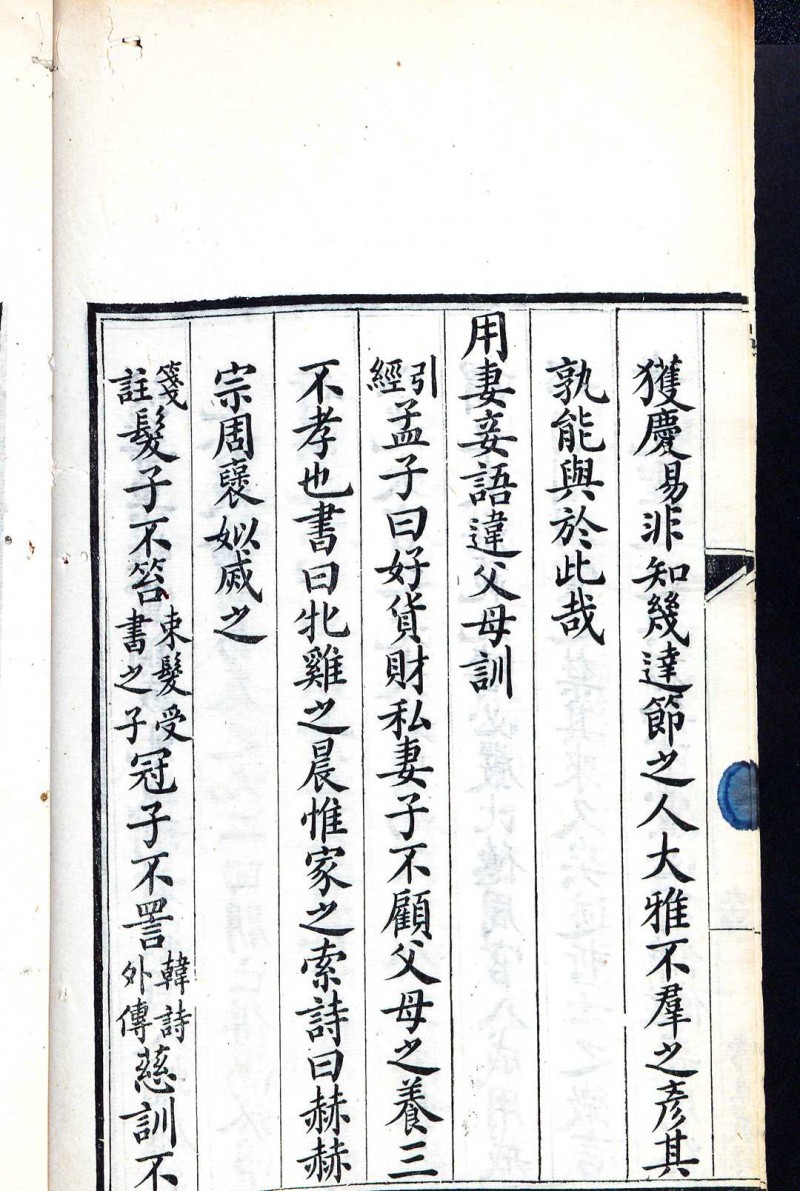 獲慶易非知幾達節之人大雅不羣之彥其
孰能與於此哉
用妻妾語違父母訓
引經孟子曰好貨財私妻子不顧父母之養三
不孝也書曰牝雞之晨惟家之索詩曰赫赫
宗周襃姒烕之
箋註髮子不笞束髮受書之子冠子不詈韓詩外傳慈訓不